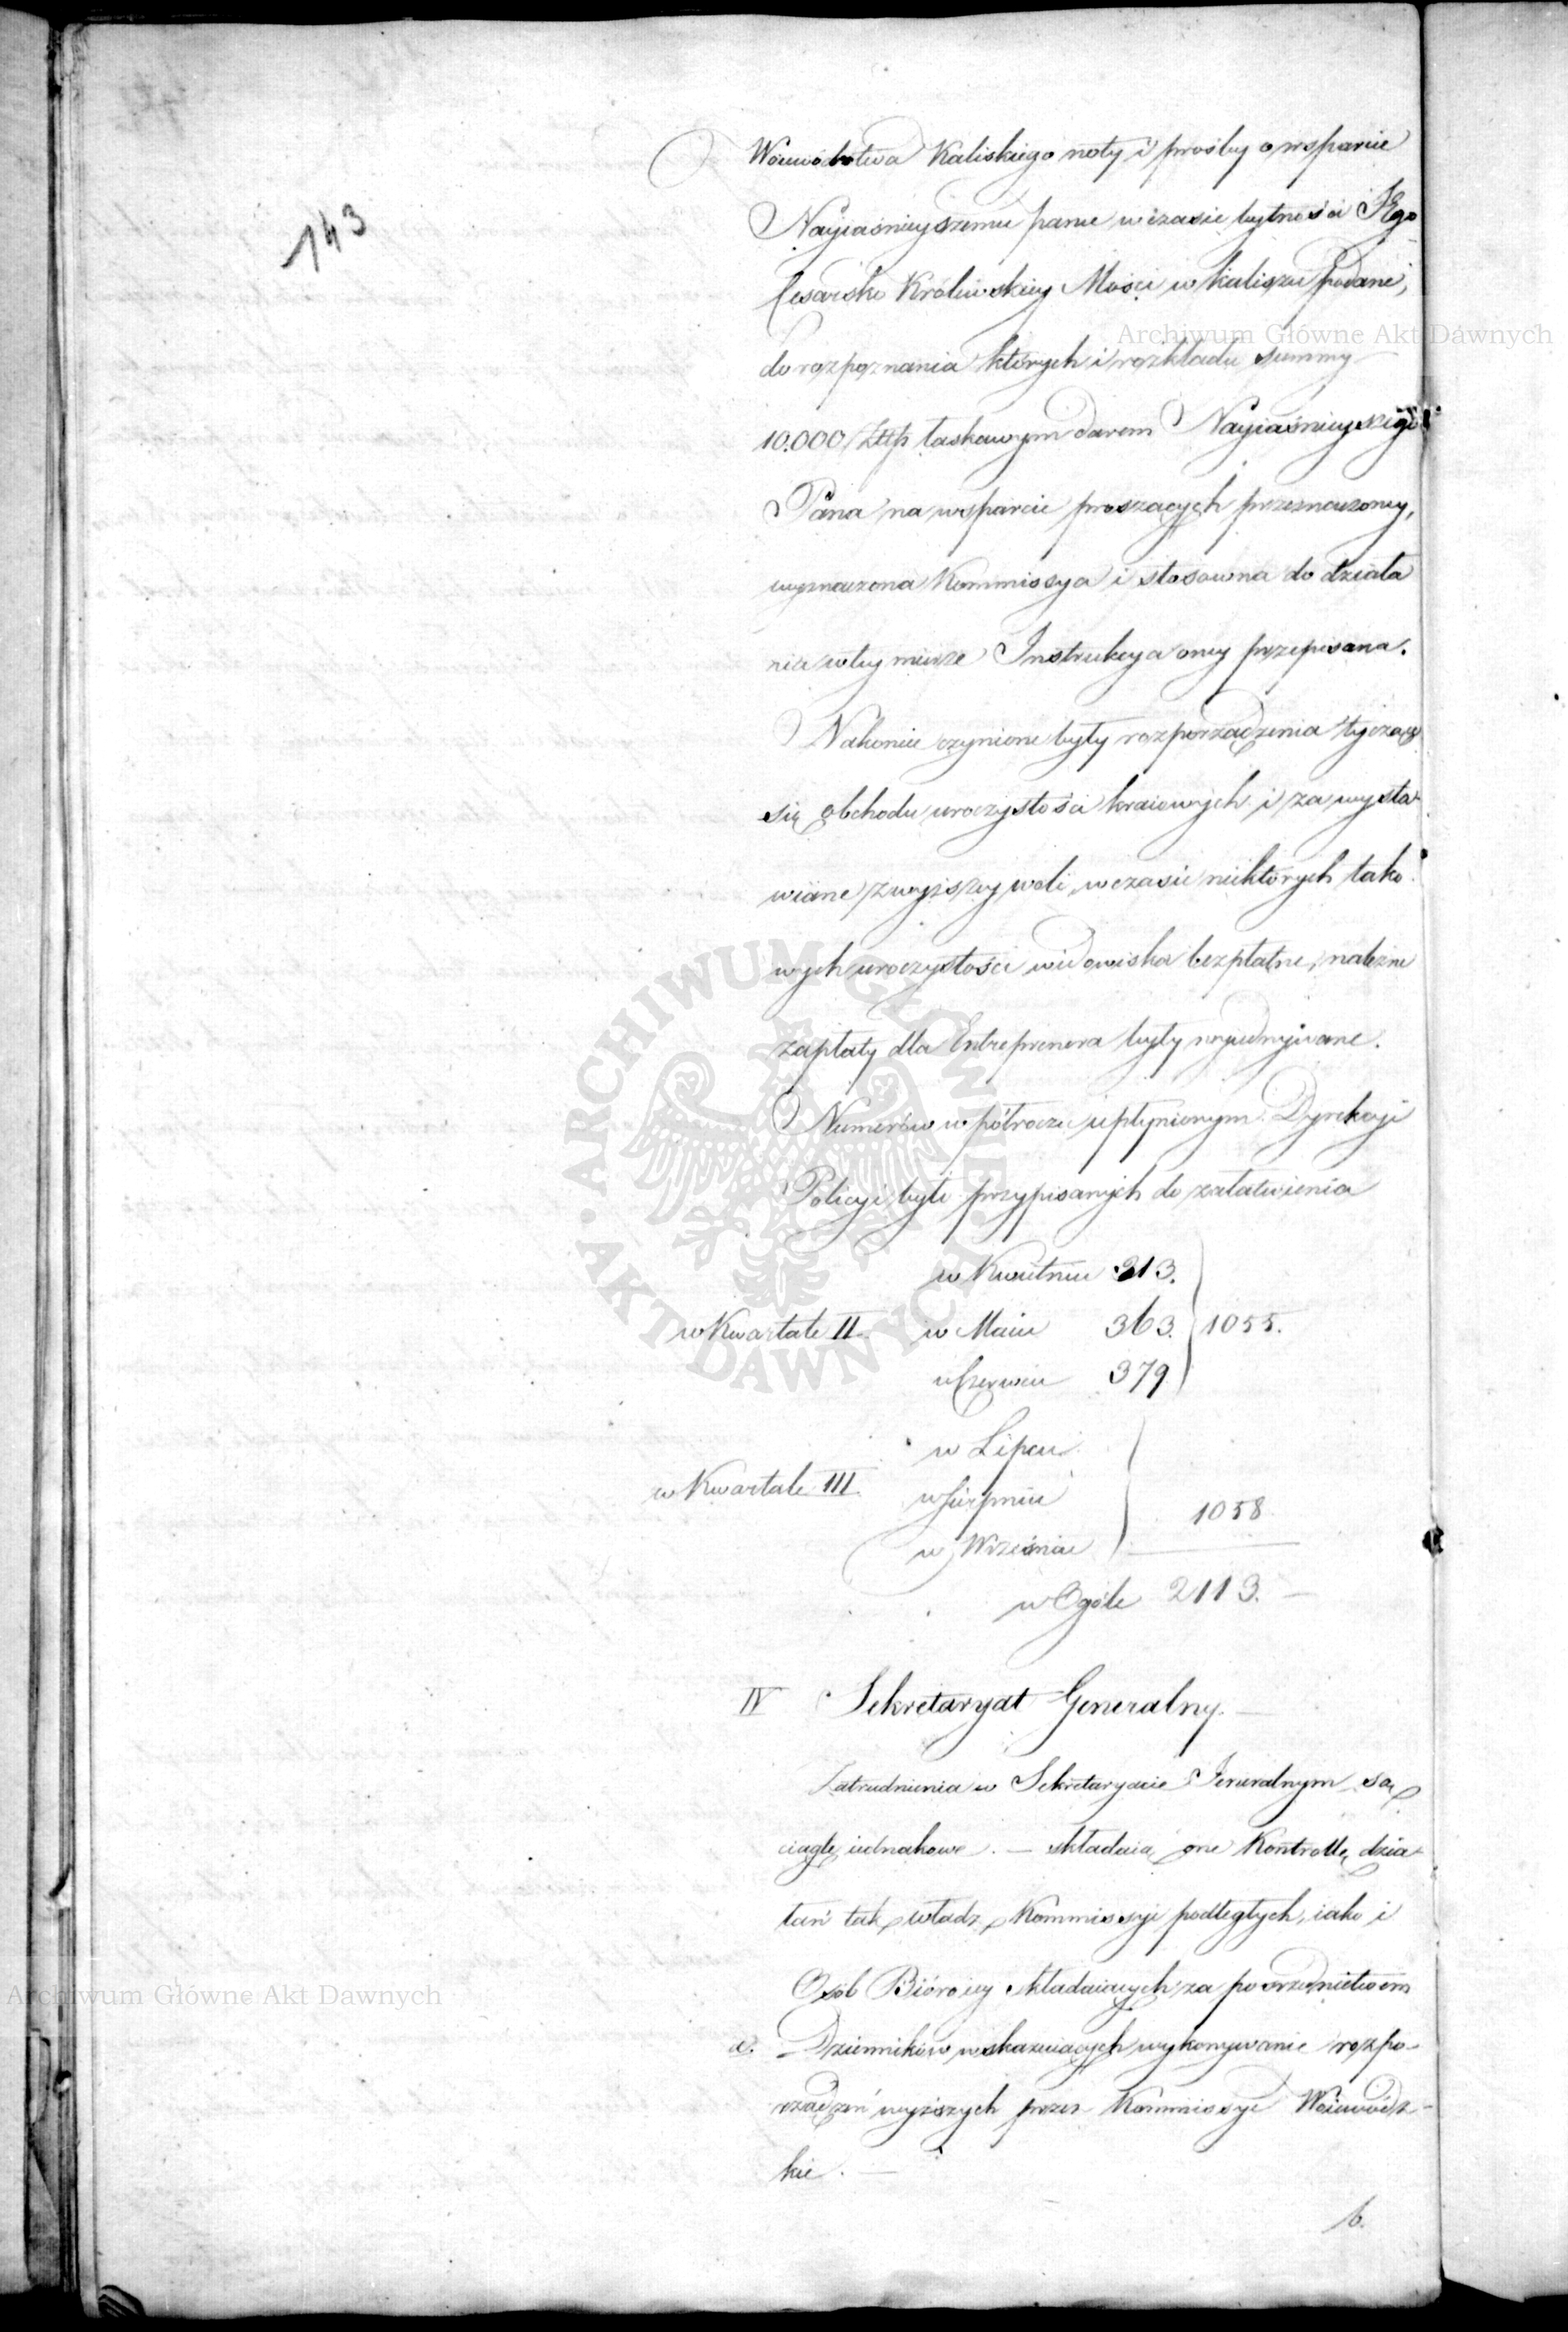 143
Woiewództwa Kaliskiego noty i prośby o wsparcie
Nayiaśnieyszemu panu w czasie bytności JEgo
Cesarsko Królewskiey Mości w Kaliszu podane,
do rozpoznania których i rozkładu summy
10.000 Złłp łaskawym darem Nayiaśnieyszego
Pana na wsparcie proszących przeznaczoney,
wyznaczona Kommissya i stosowna do działa
nia w tey mierze Instrukcya oney przepisana.
Nakoniec czynione były rozporządzenia tyczące
się obchodu uroczystości kraiowych i za wysta-
wiane z wyższey woli w czasie niektórych tako
wych uroczystości widowiska bezpłatne, należne
zapłaty dla Entreprenera były wyiednywane.
Numerów w półroczu upłynionym Dyrekcyi
Policyi było przypisanych do załatwienia
w Kwietniu 313.
w Kwartale II. w Maiu 363. 1055.
w Czerwcu 379
w Lipcu
w Kwartale III. w Sierpniu 1058
w Wrześniu
w Ogóle 2113.
IV Sekretaryat Generalny.
Zatrudnienia w Sekretaryacie Jeneralnym są
ciągle iednakowe. — składaią one Kontrollę dzia-
łań tak władz Kommissyi podległych, iako i
Osób Bióro iey składaiących za pośrednictwem
a. Dzienników wskazuiących wykonywanie rozpo-
rządzeń wyższych przez Kommissye Woiewódz-
kie. —
b.
Archiwum Główne Akt Dawnych
Archiwum Główne Akt Dawnych
ARCHIWUM GŁÓWNE • AKT DAWNYCH •